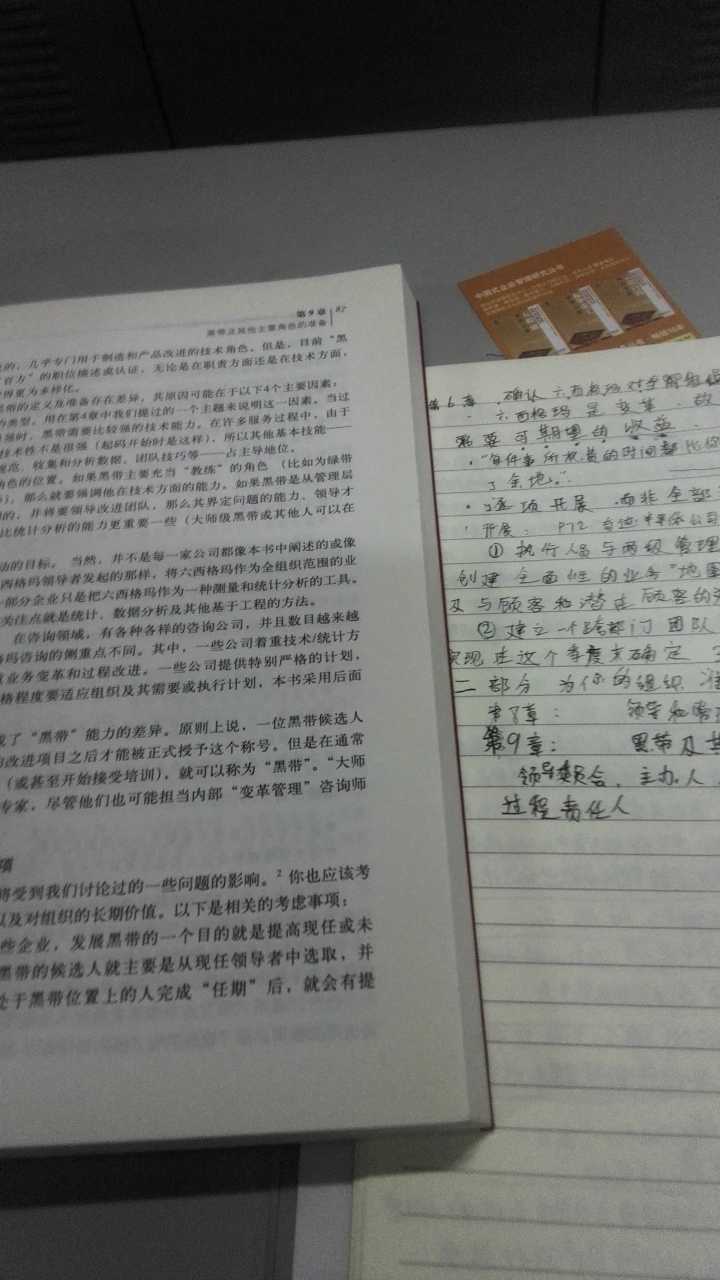 第9章 87
黑带及其他主要角色的准备
的，几乎专门用于制造和产品改进的技术角色。但是，目前“黑
百方”的职位描述或认证，无论是在职责方面还是在技术方面，
得更为多样化。
带的定义及准备存在差异，其原因可能在于以下4个主要因素：
的类型。用在第4章中我们提过的一个主题来说明这一因素。当过
时，黑带需要比较强的技术能力。在许多服务过程中，由于
技术性不是很强（起码开始时是这样），所以其他基本技能——
规范、收集和分析数据、团队技巧等——占主导地位。
角色的位置。如果黑带主要充当“教练”的角色（比如为绿带
，那么就要强调他在技术方面的能力。如果黑带是从管理层
的，并将要领导改进团队，那么其界定问题的能力、领导才
比统计分析的能力更重要一些（大师级黑带或其他人可以在
动的目标。当然，并不是每一家公司都像本书中阐述的或像
西格玛领导者发起的那样，将六西格玛作为全组织范围的业
一部分企业只是把六西格玛作为一种测量和统计分析的工具。
关注点就是统计、数据分析及其他基于工程的方法。
在咨询领域，有各种各样的咨询公司，并且数目越来越
玛咨询的侧重点不同。其中，一些公司着重技术/统计方
业务变革和过程改进。一些公司提供特别严格的计划，
格程度要适应组织及其需要或执行计划，本书采用后面
成了“黑带”能力的差异。原则上说，一位黑带候选人
改进项目之后才能被正式授予这个称号。但是在通常
（或甚至开始接受培训），就可以称为“黑带”。“大师
专家，尽管他们也可能担当内部“变革管理”咨询师
项
将受到我们讨论过的一些问题的影响。2 你也应该考
以及对组织的长期价值。以下是相关的考虑事项：
些企业，发展黑带的一个目的就是提高现任或未
黑带的候选人就主要是从现任领导者中选取，并
处于黑带位置上的人完成“任期”后，就会有提
中国式企业管理研究丛书
第6章 确认六西格玛对
六西格玛是变革 故
需要可期望的收益．
·“每件事所耗费的时间都比你
了余地。”
·逐项开展 而非全部
开展： P72
① 执行人员与高级管理
创建全面性的业务“地图
及与顾客和潜在顾客的
② 建立一个跨部门团队
实现在这个季度末确定
二部分 为你的组织 准
第8章： 领导
第9章： 黑带及其
领导委员会，主办人
过程责任人